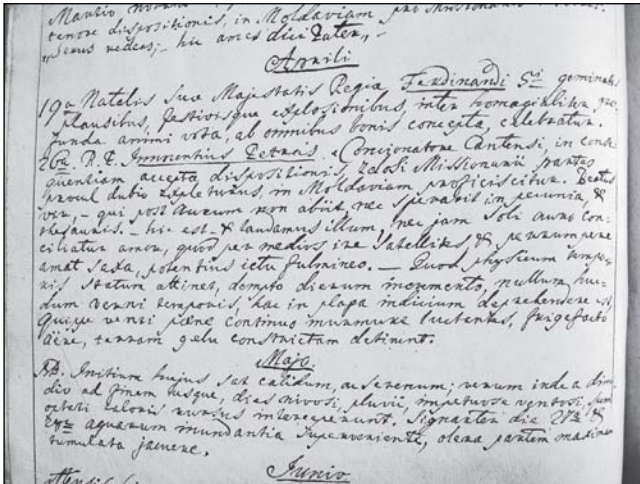 tenore dispositionis, in Moldaviam
Aprili
19a Natalis Suae Majestatis Regiae Ferdinandi 5ti geminatis
plausibus, festivisque explosionibus, inter homagialiter pro-
funda animi vota, ab omnibus bonis concepta, celebratur.
26a. R. P. Innocentius Petrás, e Concionatore Cantensi, in conse-
quentiam accepta dispositionis, zelosi Missionarii partes
procul dubio expleturus, in Moldaviam proficiscitur. Beatus
vir, – qui post aurum non abiit, nec speravit in pecunia, &
thesauris. – hic est & laudamus illum, nec jam soli auro con-
ciliatur amor, quod per medios ire satellites, & perrumpere
amat saxa, potentius ictu fulmineo. — Quod physicum tempo-
ris statum attinet, dempto dierum incremento, nullum hu-
dum verni temporis, hac in plaga indicium deprehendere est,
quippe venti paene continuo murmure luctantes, frigefacto
aëre, terram gelu constrictam detinent.
Majo.
NB. Initium hujus sat calidum, ac serenum; verum inde a dimi-
dio ad finem usque, dies nivosi, pluvii, impetuose ventosi,
caloris rursus interceperunt. Signanter die 27a &
aquarum inundantia superveniente, olera partem maximam
tumulata jacuere.
Junio